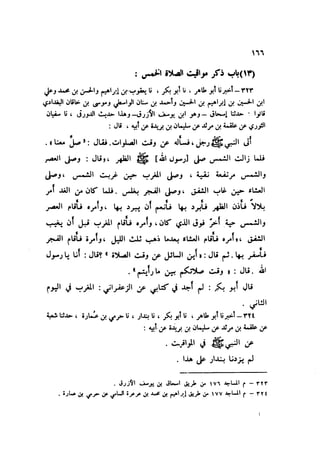 ١٦٦
(١٣) باب ذكر مواقيت الصلاة الخمس :
٣٢٣ – أخبرنا أبو طاهر ، نا أبو بكر ، نا يعقوب بن إبراهيم والحسن بن محمد وعلي
ابن الحسين بن إبراهيم بن الحسين وأحمد بن سنان الواسطي وموسى بن خاقان البغدادي
قالوا : حدثنا إسحاق – وهو ابن يوسف الأزرق – وهذا حديث الدورقي ، نا سفيان
الثوري عن علقمة بن مرثد عن سليمان بن بريدة عن أبيه ، قال :
أتى النبي ﷺ رجل ، فسأله عن وقت الصلوات . فقال : «صلِّ معنا» .
فلما زالت الشمس صلى [رسول الله] ﷺ الظهر ، وقال : وصلى العصر
والشمس مرتفعة نقية ، وصلى المغرب حين غربت الشمس ، وصلى
العشاء حين غاب الشفق ، وصلى الفجر بغلس . فلما كان من الغد أمر
بلالاً فأذن الظهر فأبرد بها فأنعم أن يبرد بها ، وأمره فأقام العصر
والشمس حية أخّر فوق الذي كان ، وأمره فأقام المغرب قبل أن يغيب
الشفق ، وأمره فأقام العشاء بعدما ذهب ثلث الليل ، وأمره فأقام الفجر
فأسفر بها . ثم قال : «أين السائل عن وقت الصلاة ؟» قال : أنا يا رسول
الله . قال : «وقت صلاتكم بين ما رأيتم» .
قال أبو بكر : لم أجد في كتابي عن الزعفراني : المغرب في اليوم
الثاني .
٣٢٤ – أخبرنا أبو طاهر ، نا أبو بكر ، نا بندار ، نا حرمي بن عمارة ، حدثنا شعبة
عن علقمة بن مرثد عن سليمان بن بريدة عن أبيه :
عن النبي ﷺ في المواقيت .
لم يزدنا بندار على هذا .
٣٢٣ – م المساجد ١٧٦ من طريق إسحاق بن يوسف الأزرق .
٣٢٤ – م المساجد ١٧٧ من طريق إبراهيم بن محمد بن عرعرة السامي عن حرمي بن عمارة .